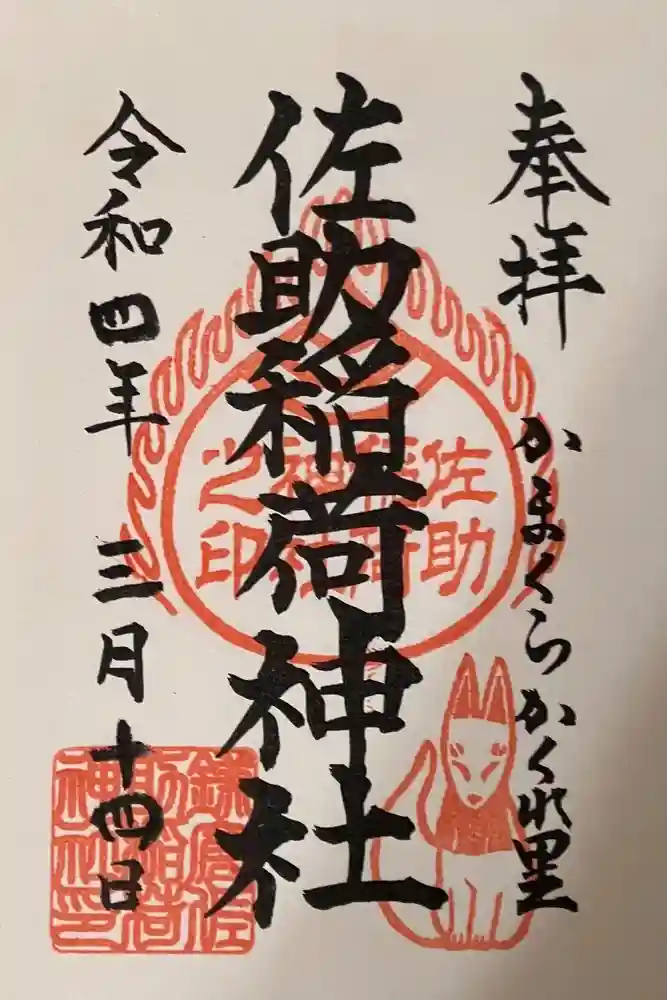 奉拝
かまくらかくれ里
佐助稲荷神社
佐助
稲荷
神社
之印
令和四年 三月 十四日
鎌倉佐
助稲荷
神社印